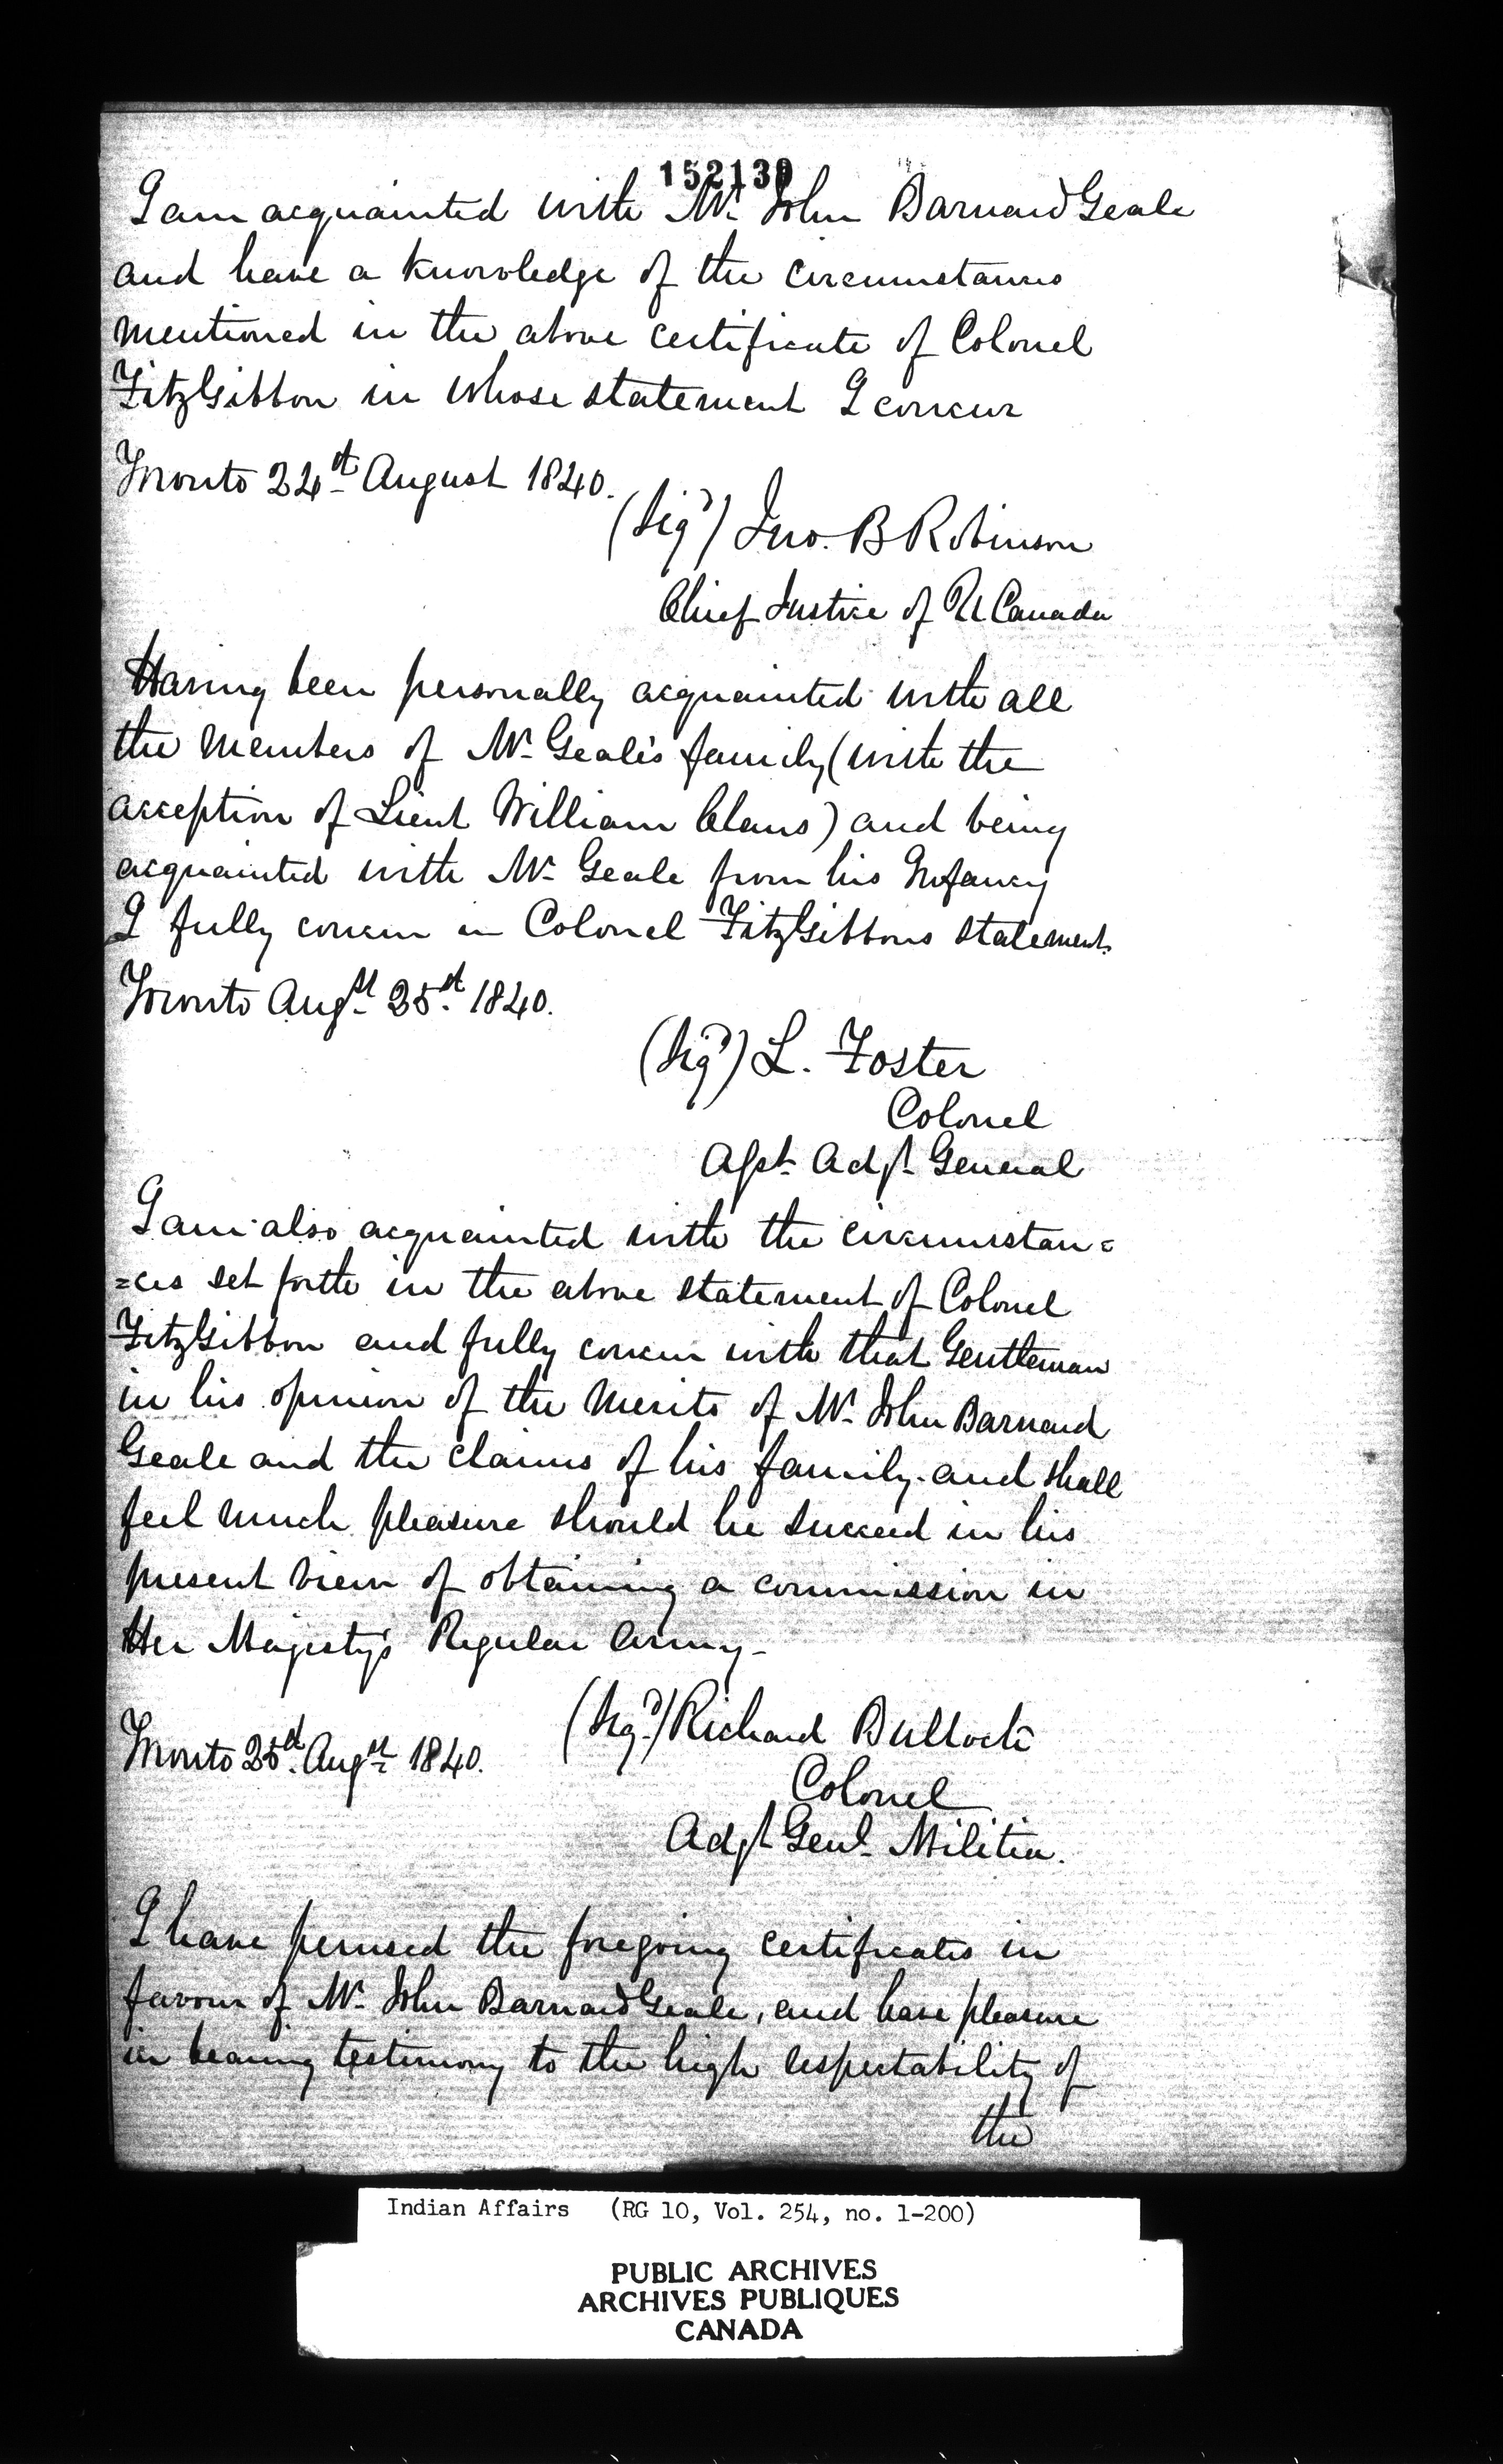 152139
I am acquainted with Mr John Barnard Geale
and have a knowledge of the circumstances
mentioned in the above certificate of Colonel
FitzGibbon in whose statement I concur
Toronto 24st August 1840.
(Sigd) Jno. B Robinson
Chief Justice of U Canada
Having been personally acquainted with all
the members of Mr Geale's family (with the
acception of Lieut William Claus) and being
acquainted with Mr Geale from his Infancy
I fully concur in Colonel FitzGibbons statement.
Toronto Augst 25st 1840.
(Sigd) L. Foster
Colonel
Asst Adjt General
I am also acquainted with the circumstan=
=ces set forth in the above statement of Colonel
FitzGibbon and fully concur with that Gentleman
in his opinion of the merits of Mr John Barnard
Geale and the claims of his family and shall
feel much pleasure should he succeed in his
present view of obtaining a commission in
Her Majesty's Regular Army -
(Sigd) Richard Bullock
Toronto 25st Augst 1840.
Colonel
Adjt Genl Militia.
I have perused the foregoing certificates in
favour of Mr John Barnard Geale, and have pleasure
in bearing testimony to the high respectability of
the
Indian Affairs (RG 10, Vol. 254, no. 1-200)
PUBLIC ARCHIVES
ARCHIVES PUBLIQUES
CANADA